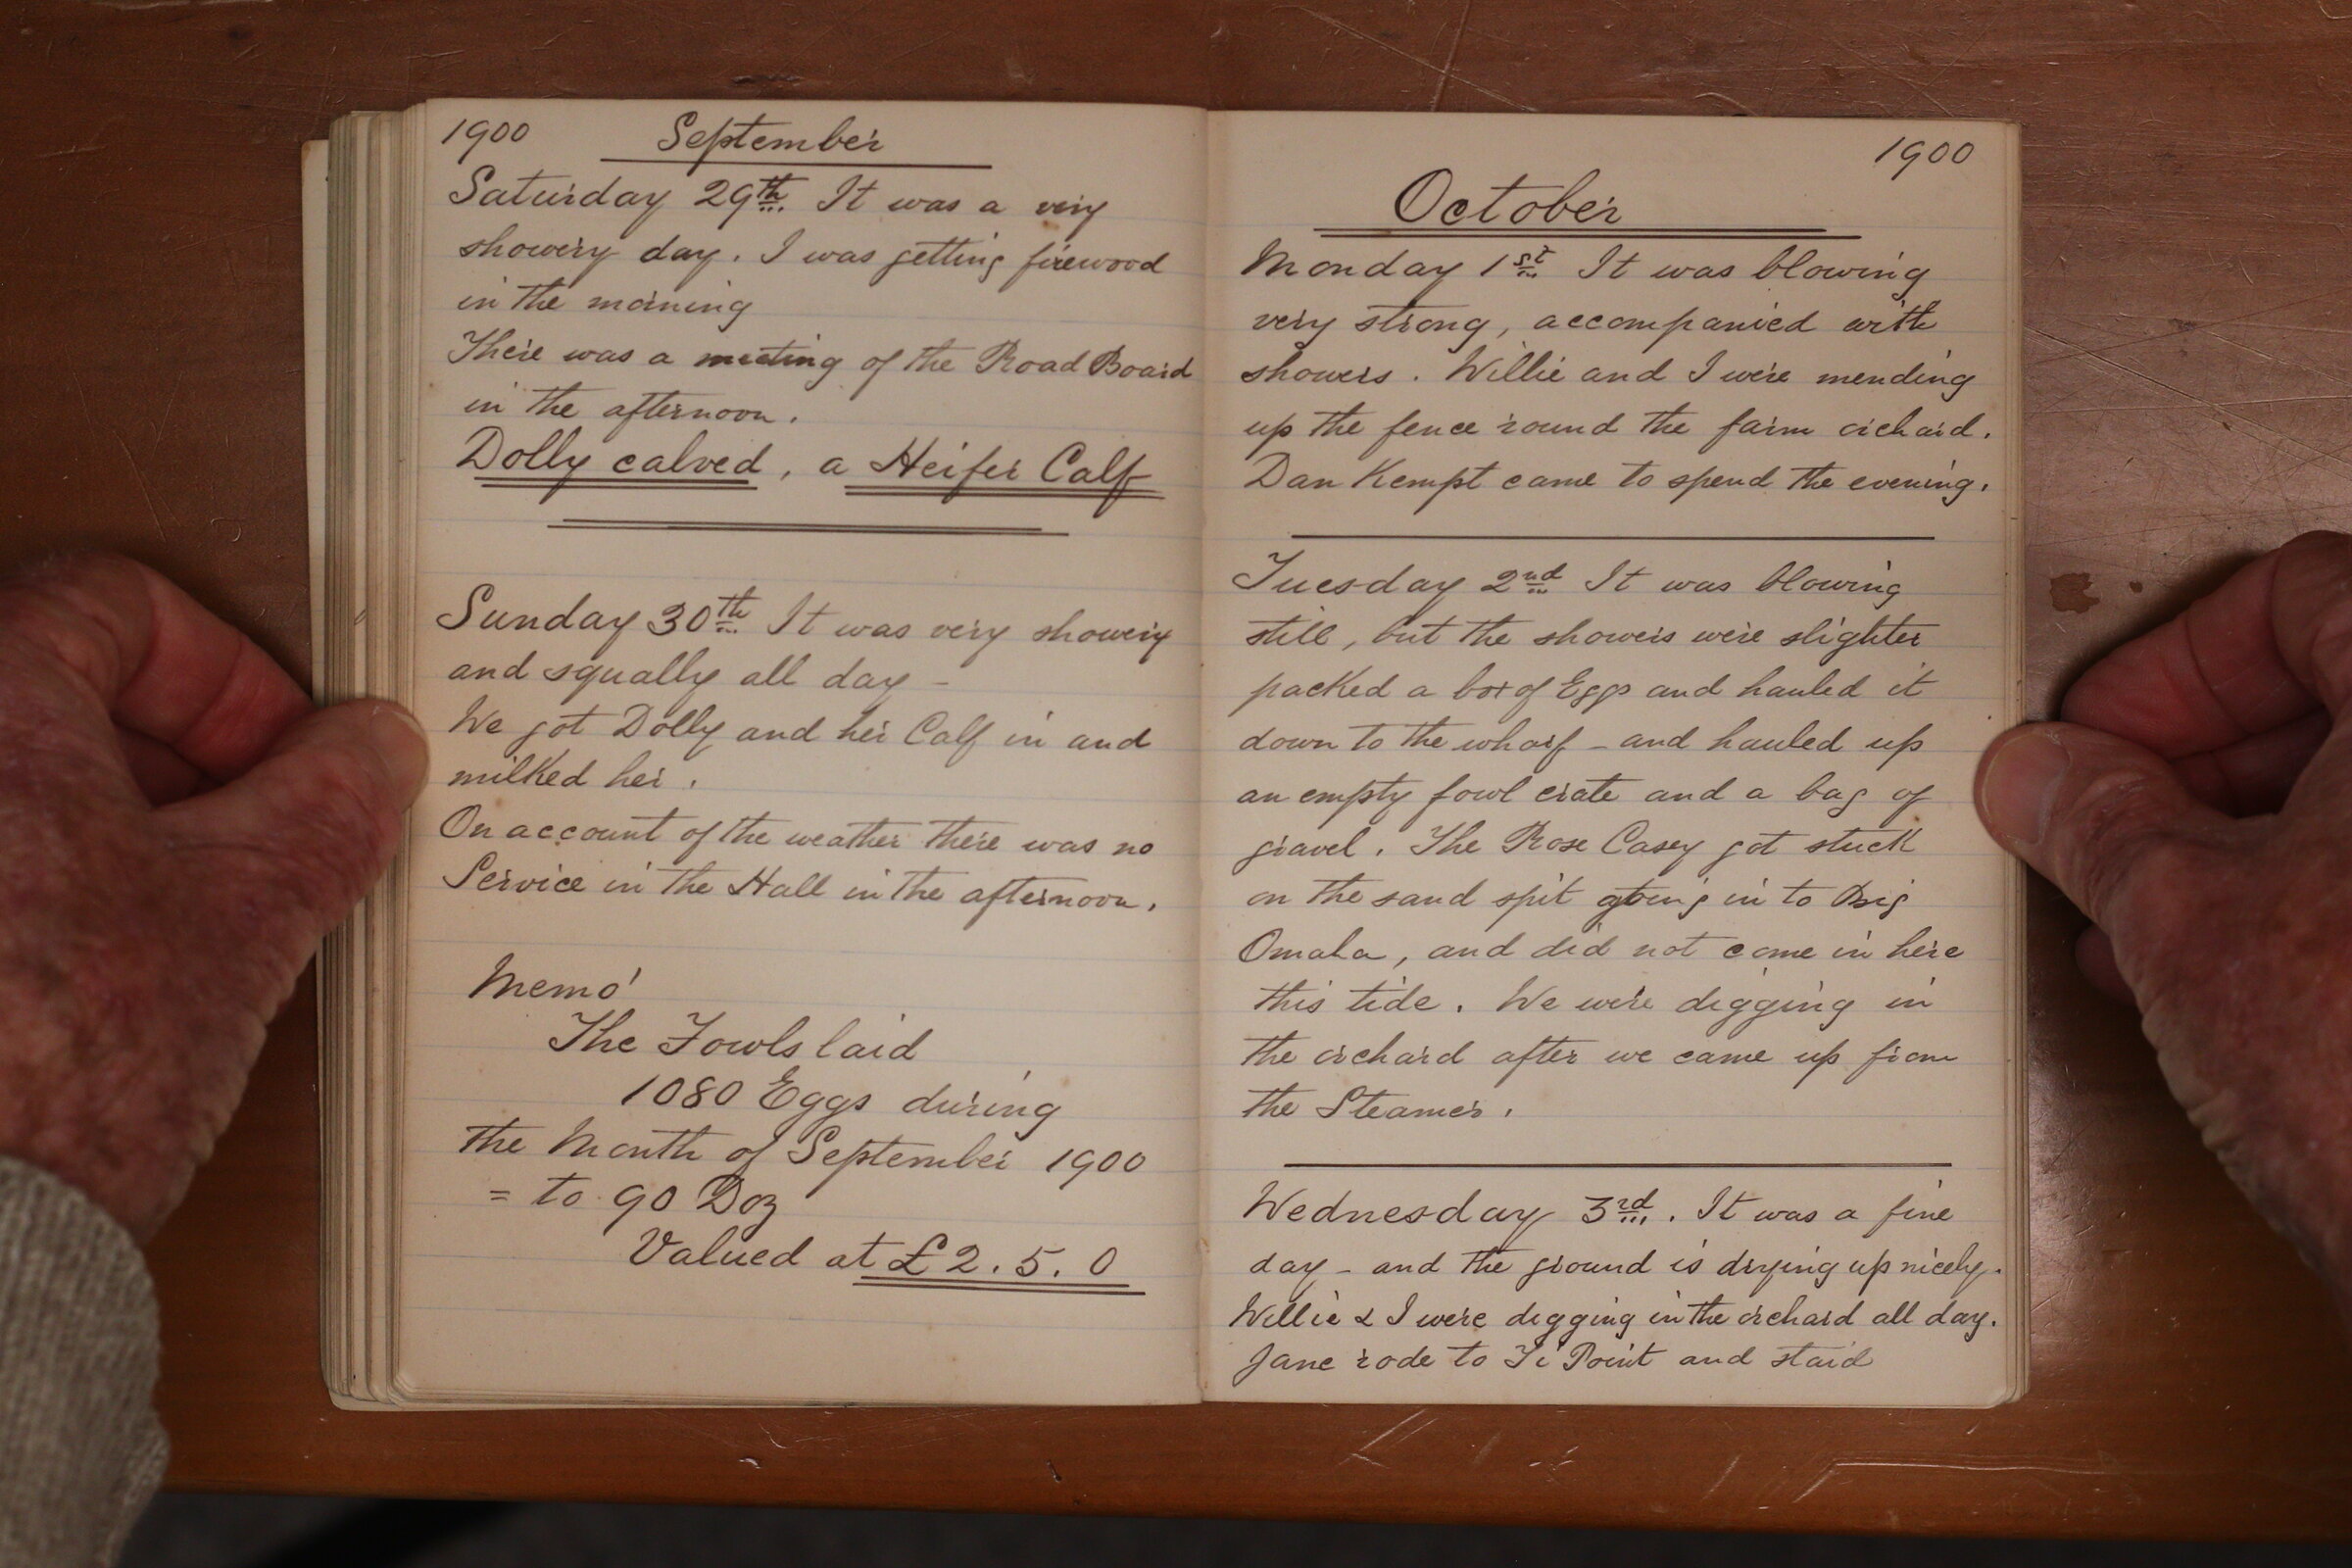 1900 September
Saturday 29th. It was a very
showery day. I was getting firewood
in the morning
There was a meeting of the Road Board
in the afternoon.
Dolly calved, a Heifer Calf
Sunday 30th It was very showery
and squally all day -
We got Dolly and her Calf in and
milked her.
On account of the weather there was no
Service in the Hall in the afternoon.
Memo'
The Fowls laid
1080 Eggs during
the Month of September 1900
= to 90 Doz
Valued at £2.5.0
1900
October
Monday 1st It was blowing
very strong, accompanied with
showers. Willie and I were mending
up the fence round the farm orchard.
Dan Kempt came to spend the evening.
Tuesday 2nd It was blowing
still, but the showers were slighter
packed a box of Eggs and hauled it
down to the wharf - and hauled up
an empty fowl crate and a bag of
gravel. The Rose Casey got stuck
on the sand spit going in to Big
Omaha, and did not come in here
this tide. We were digging in
the orchard after we came up from
the Steamer.
Wednesday 3rd. It was a fine
day - and the ground is drying up nicely.
Willie & I were digging in the orchard all day.
Jane rode to Ti Point and staid